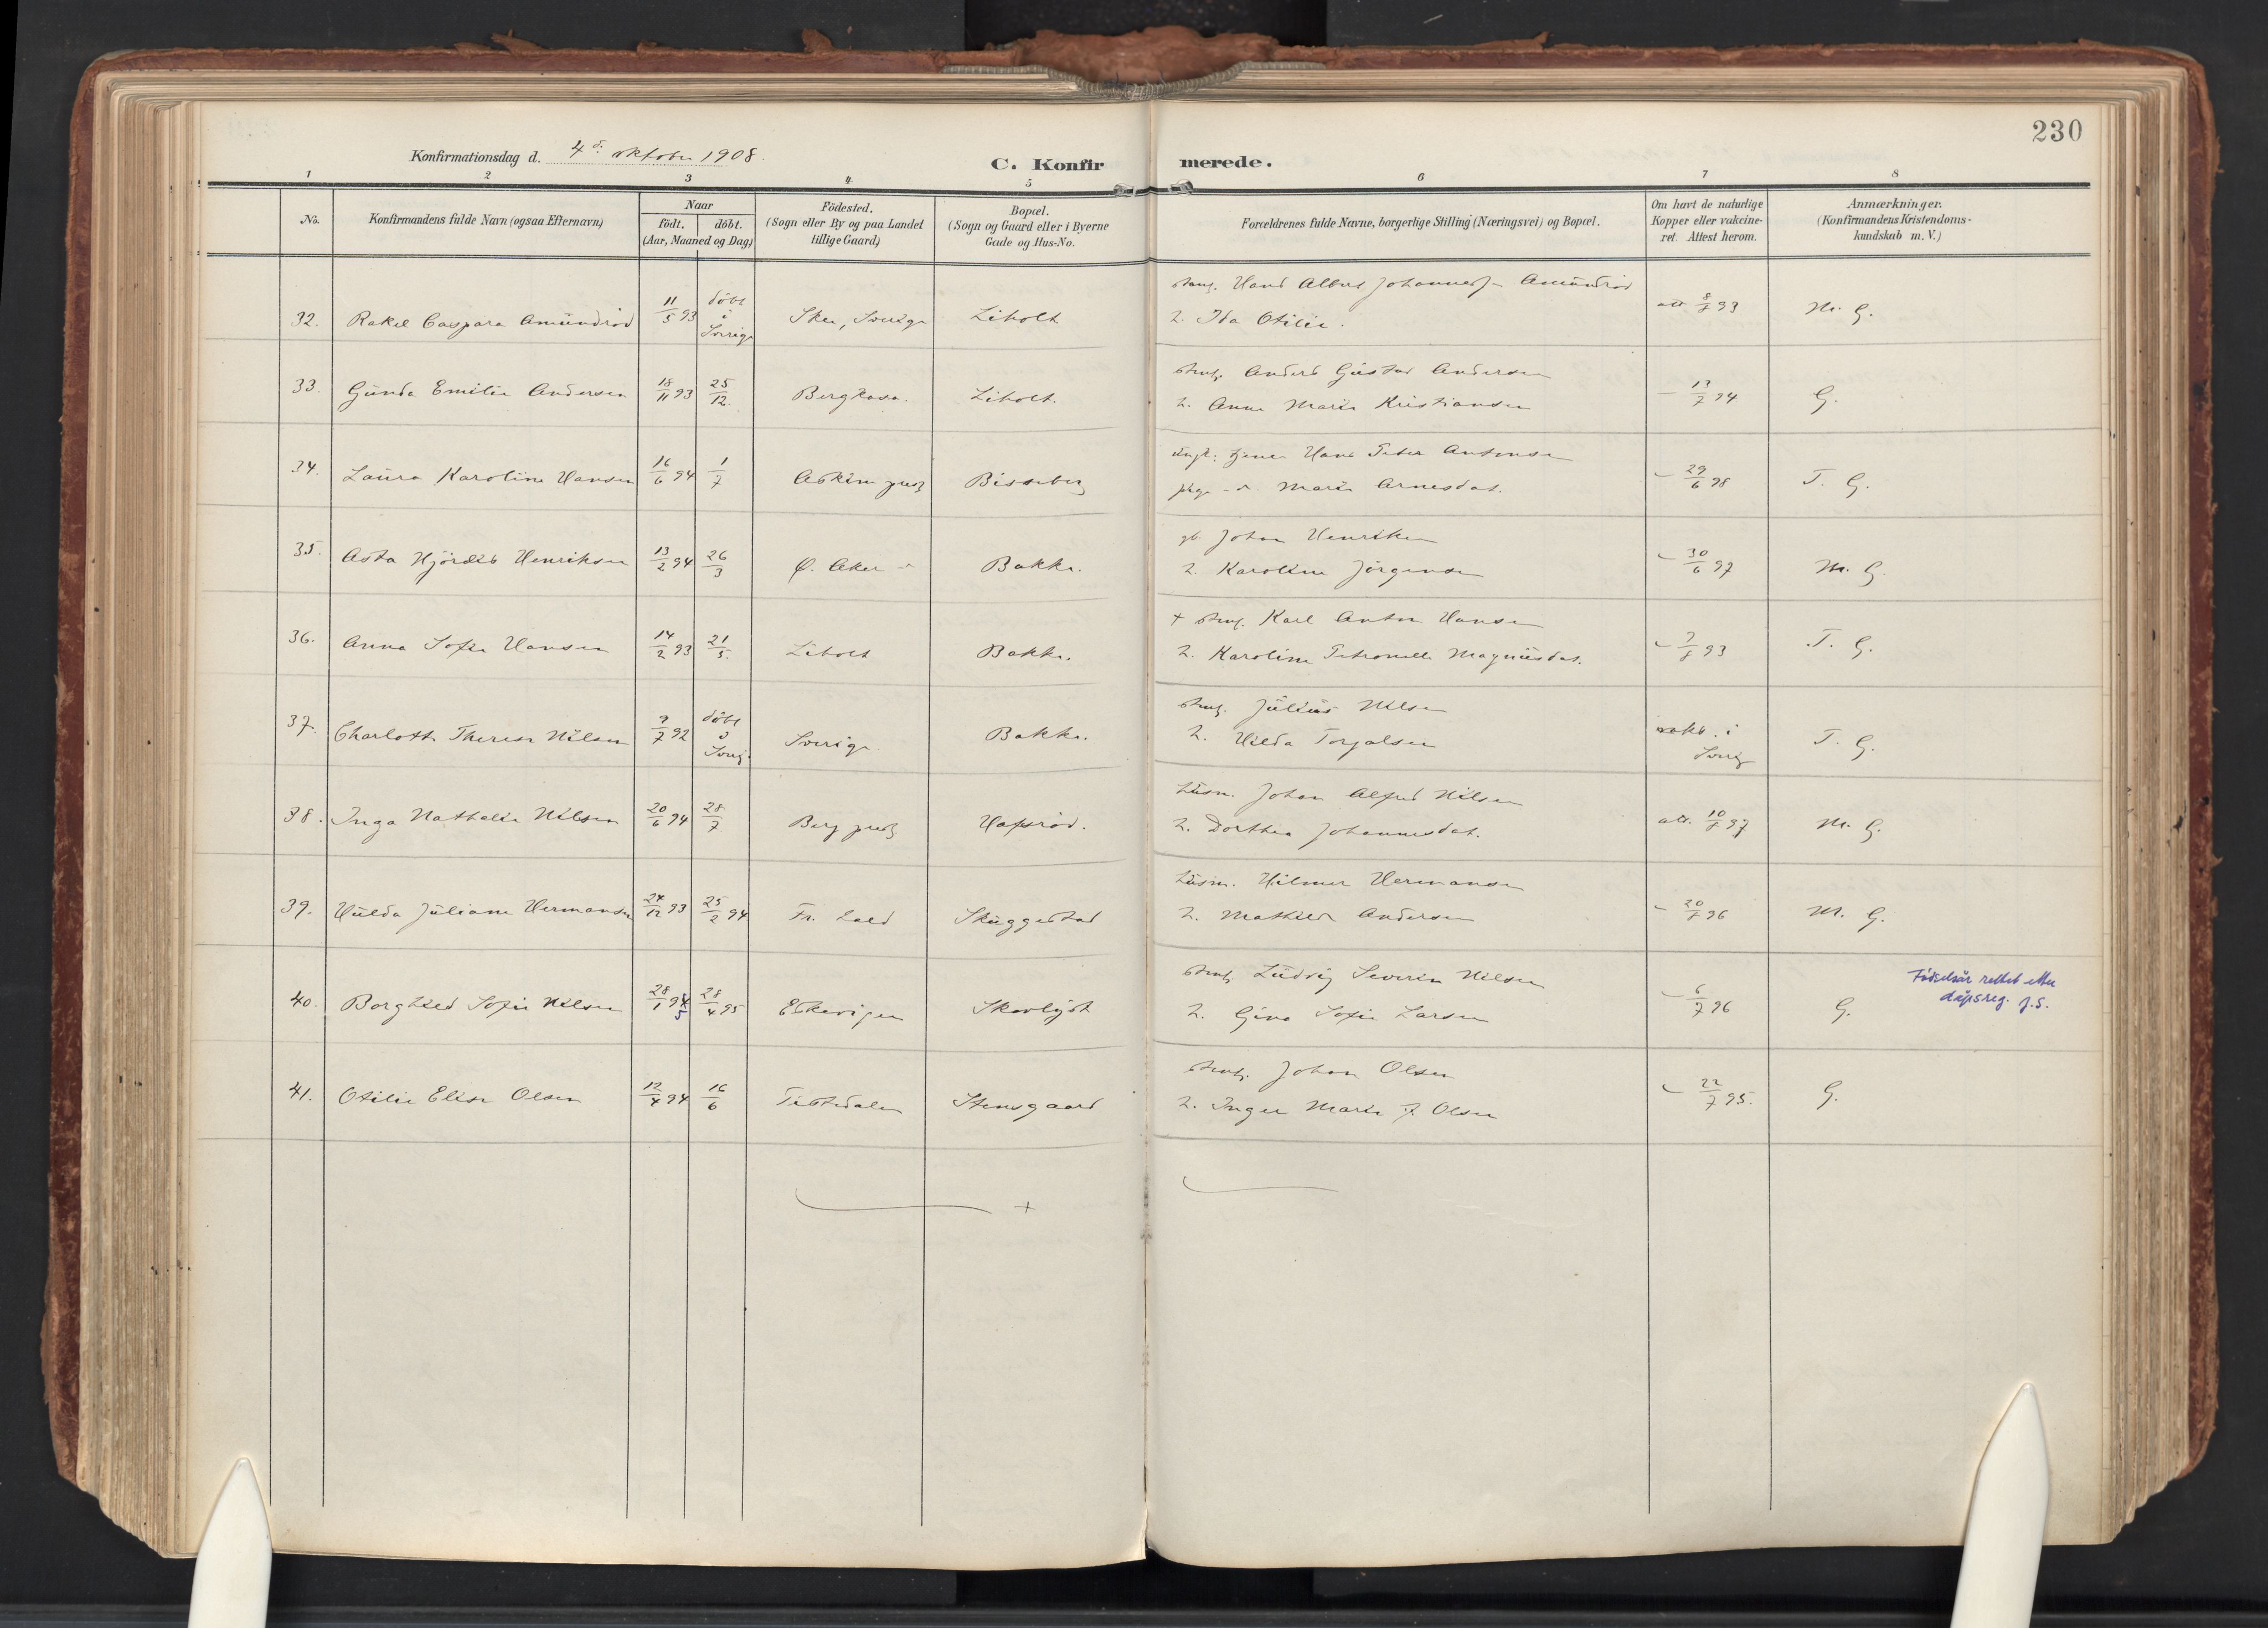 230
Konfirmationsdag d. 4de oktober 1908.
C. Konfirmerede.
1 2 3 4 5 6 7 8
No.
Konfirmandens fulde Navn (ogsaa Efternavn)
Naar
födt, döbt.
(Aar, Maaned og Dag)
Födested.
(Sogn eller By og paa Landet
tillige Gaard)
Bopæl.
(Sogn og Gaard eller i Byerne
Gade og Hus-No.
Forældrenes fulde Navne, borgerlige Stilling (Næringsvei) og Bopæl.
Om havt de naturlige
Kopper eller vakcine-
ret. Attest herom.
Anmærkninger.
(Konfirmandens Kristendoms-
kundskab m. V.)
32. Rakel Caspara Amundröd 11/5 93 döbt i Sverige Skee, Sverige Liholt
Hans Albert Johannes Amundröd
2. Ida Otilie.
att. 8/8 93 M. G.
33. Gunda Emilie Andersen 18/11 93 25/12. Bergkasa. Liholt.
Anders Gustav Andersen
2. Anne Marie Kristiansen
- 13/7 94 G.
34. Laura Karoline Hansen 16/6 94 1/7 Askim Bisseberg
ungk. tjener Hans Peter Antonsen
pige - Marie Arnesdat.
- 29/6 98 T. G.
35. Asta Hjördis Henriksen 13/2 94 26/3 Ø. Aker Bakke.
gb. Johan Henriksen
2. Karoline Jörgensen
- 30/6 97 M. G.
36. Anna Sofie Hansen 14/2 93 21/5. Liholt Bakke.
+ Karl Anton Hansen
2. Karoline Petronelle Magnusdat.
- 7/8 93 T. G.
37. Charlotte Therese Nilsen 9/7 92 döbt i Sverig. Sverige Bakke.
Julius Nilsen
2. Hilda Torjalsen
vakc. i
Sverig
T. G.
38. Inga Nathalie Nilsen 20/6 94 28/7 Berg Hafsröd.
husm. Johan Alfred Nilsen
2. Dorthea Johannesdat.
att. 10/8 97 M. G.
39. Hulda Juliane Hermansen 24/12 93 25/2 94 Fr. hald Skuggestad
husm. Hilmer Hermansen
2. Mathilde Andersen
- 20/8 96 M. G.
40. Borghild Sofie Nilsen 28/1 94 5 28/4 95 Eskevigen Skovlyst
Ludvig Severin Nilsen
2. Gina Sofie Larsen
- 6/7 96 G.
Födselsår rettet etter
dåpsreg. J.S.
41. Otilie Elise Olsen 12/4 94 16/6 Tistedalen Stensgaard
Johan Olsen
2. Inger Marie J. Olsen
- 22/7 95. G.